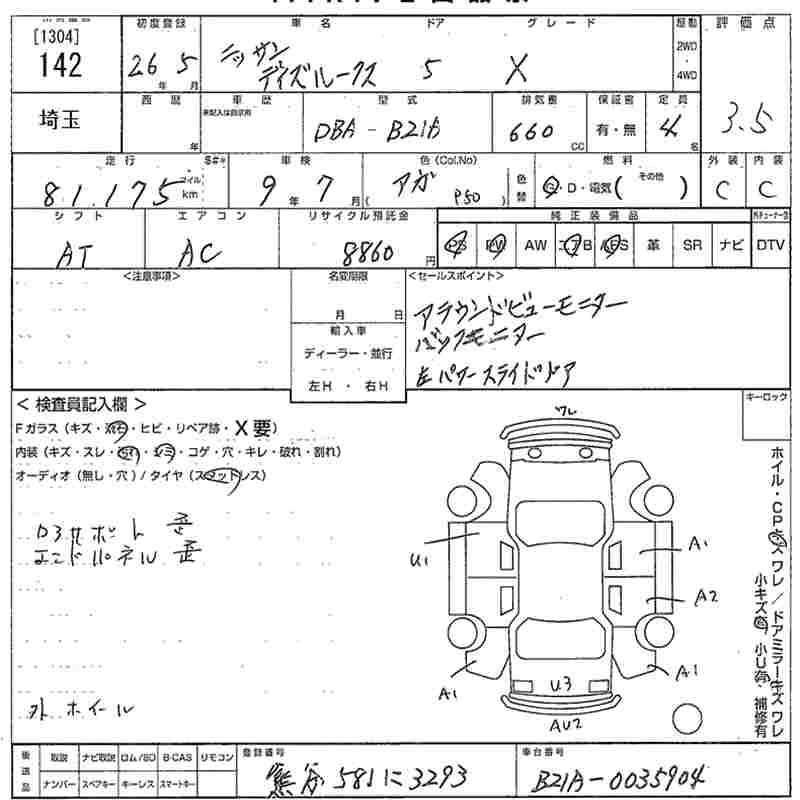 [1304]
142
埼玉
初度登録 車名 ドア グレード 駆動 評価点
26年 5月 ニッサン デイズルークス 5 X 2WD・4WD
3.5
西暦 車歴 型式 排気量 保証書 定員
年 未記入は自家用 DBA-B21A 660CC 有・無 4名
走行 S#* 車検 色(Col.No) 燃料 外装 内装
81,175 マイル km 9年 7月 ( アカ P50 ) 色替 G・D・電気( その他 ) C C
シフト エアコン リサイクル預託金 純正装備品
AT AC 8860円 PS PW AW エアB ABS 革 SR ナビ DTV
<注意事項> 名変期限 <セールスポイント>
月 日
輸入車
ディーラー・並行
左H ・ 右H
アラウンドビューモニター
バックモニター
左パワースライドドア
<検査員記入欄>
Fガラス(キズ・飛石・ヒビ・リペア跡・X要)
内装(キズ・スレ・汚れ・シミ・コゲ・穴・キレ・破れ・割れ)
オーディオ(無し・穴)/タイヤ(スタッドレス)
ロアサポート 歪
エンドパネル 歪
外 ホイール
キーロック
ワレ
U1
A1
A2
A1
A1
U3
AU2
ホイル・CPキズ ワレ/ドアミラーキズ ワレ
小キズ有 小U有、補修有
後送品 取説 ナビ取説 ロム/SD B-CAS リモコン
ナンバー スペアキー キーレス スマートキー
登録番号
熊谷 581 に 3293
車台番号
B21A-0035904